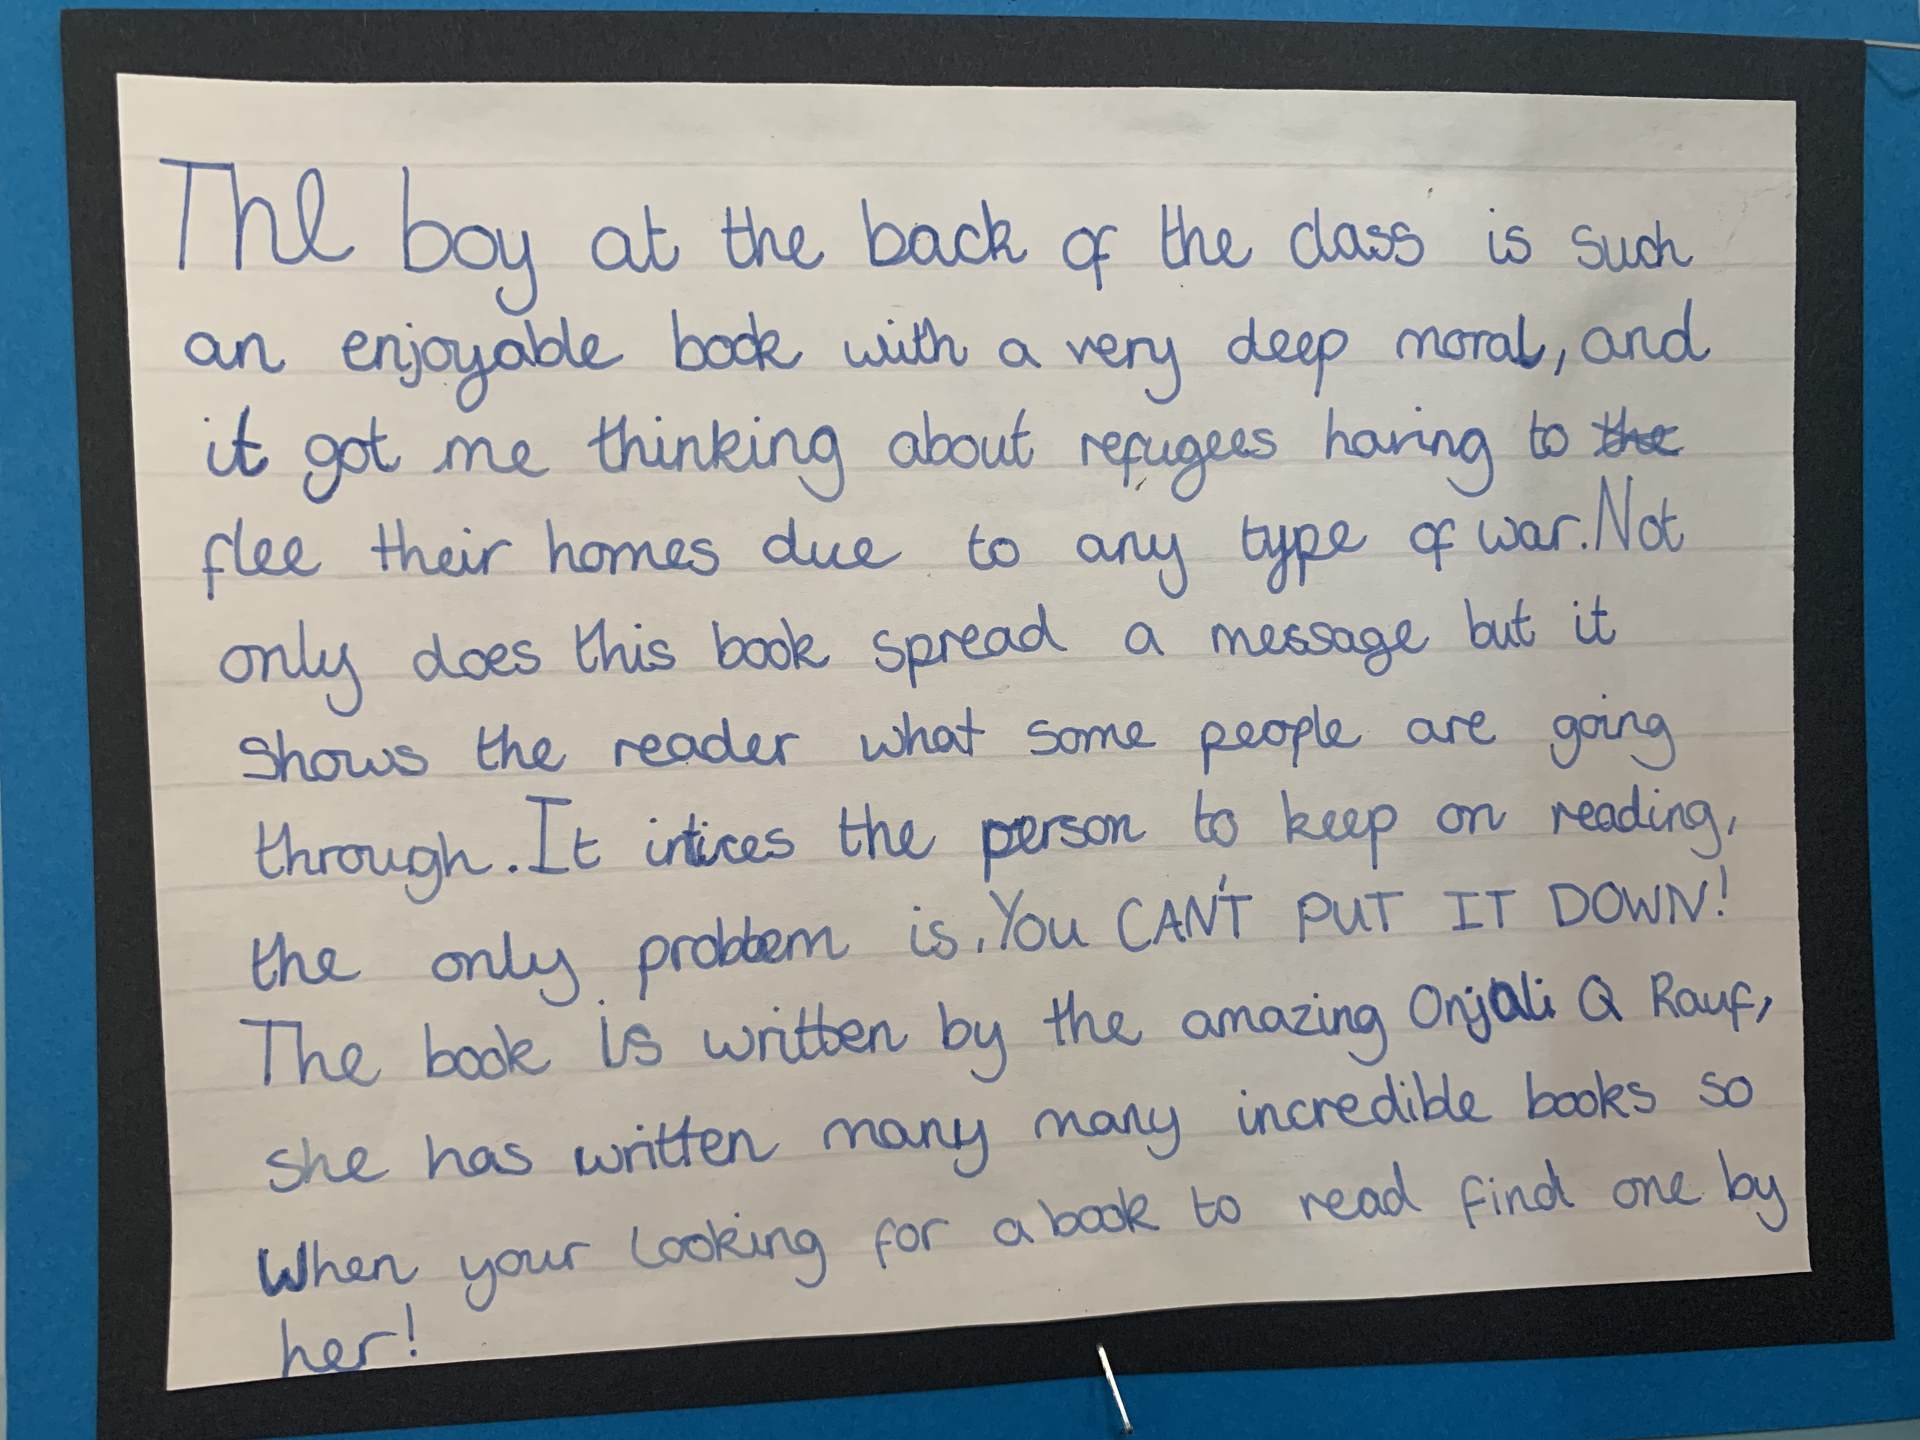 The boy at the back of the class is such
an enjoyable book with a very deep moral, and
it got me thinking about refugees having to the
flee their homes due to any type of war. Not
only does this book spread a message but it
shows the reader what some people are going
through. It intices the person to keep on reading,
the only problem is, You CAN'T PUT IT DOWN!
The book is written by the amazing Onjali Q Rauf,
she has written many many incredible books so
When your looking for a book to read find one by
her!